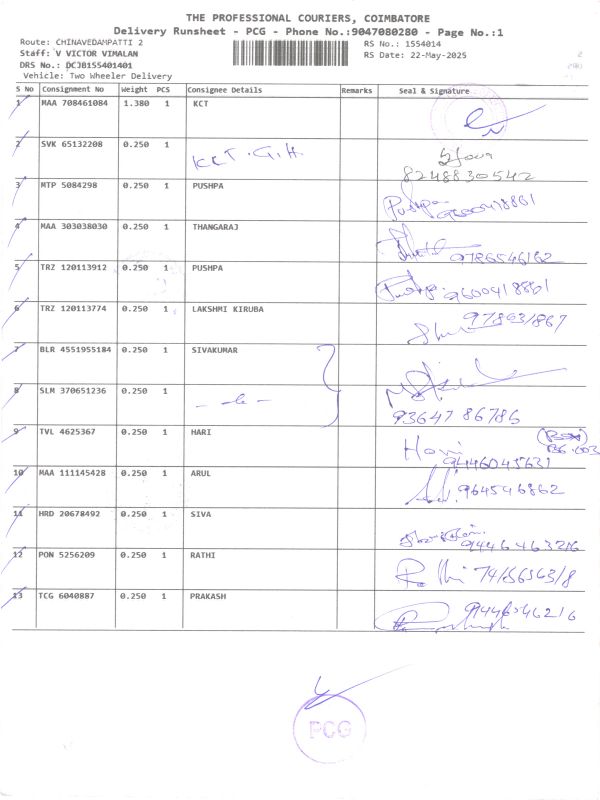 THE PROFESSIONAL COURIERS, COIMBATORE
Delivery Runsheet - PCG - Phone No.:9047080280 - Page No.:1
Route: CHINAVEDAMPATTI 2
Staff: V VICTOR VIMALAN
DRS No.: DCJB155401401
Vehicle: Two Wheeler Delivery
RS No.: 1554014
RS Date: 22-May-2025
S No Consignment No Weight PCS Consignee Details Remarks Seal & Signature
1 MAA 708461084 1.380 1 KCT
2 SVK 65132208 0.250 1 KCT. G.H.
8248830542
3 MTP 5084298 0.250 1 PUSHPA Pushpa
4 MAA 303038030 0.250 1 THANGARAJ
9786546162
5 TRZ 120113912 0.250 1 PUSHPA
9600418861
6 TRZ 120113774 0.250 1 LAKSHMI KIRUBA
7 BLR 4551955184 0.250 1 SIVAKUMAR
8 SLM 370651236 0.250 1
9364786786
9 TVL 4625367 0.250 1 HARI Hari
9446045631
10 MAA 111145428 0.250 1 ARUL
964546862
11 HRD 20678492 0.250 1 SIVA
9446463216
12 PON 5256209 0.250 1 RATHI Rathi
13 TCG 6040887 0.250 1 PRAKASH 9446046216
PCG